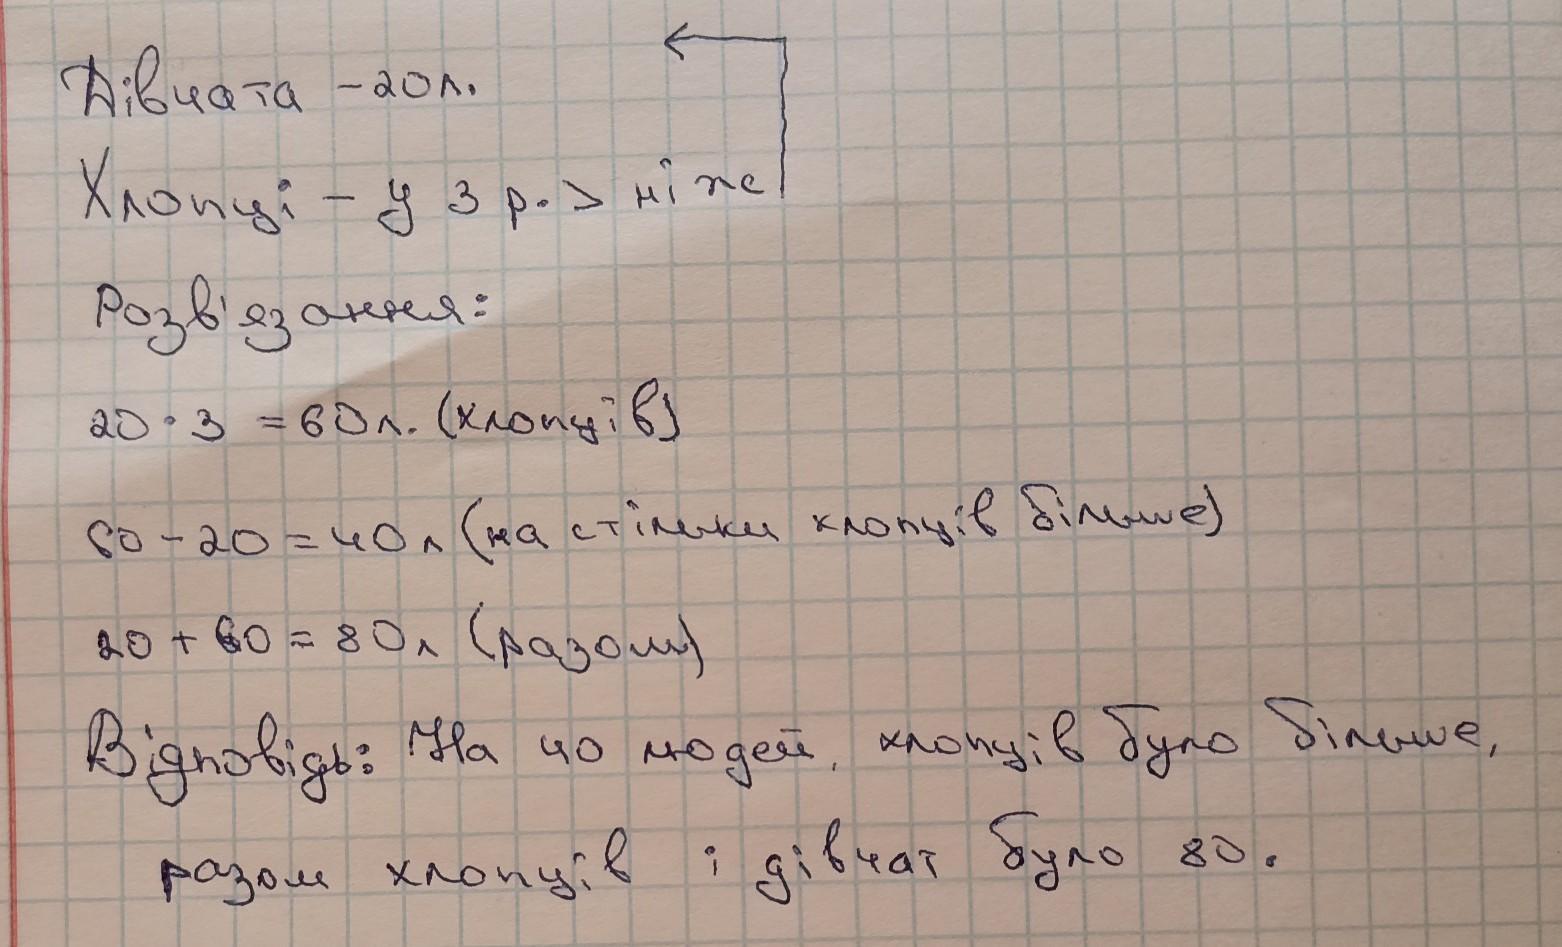 Дівчата - 20 л.
Хлопці - у 3 р. > ніж
Розв'язання:
20 · 3 = 60 л. (хлопців)
60 - 20 = 40 л (на стільки хлопців більше)
20 + 60 = 80 л (разом)
Відповідь: На 40 людей, хлопців було більше,
разом хлопців і дівчат було 80.